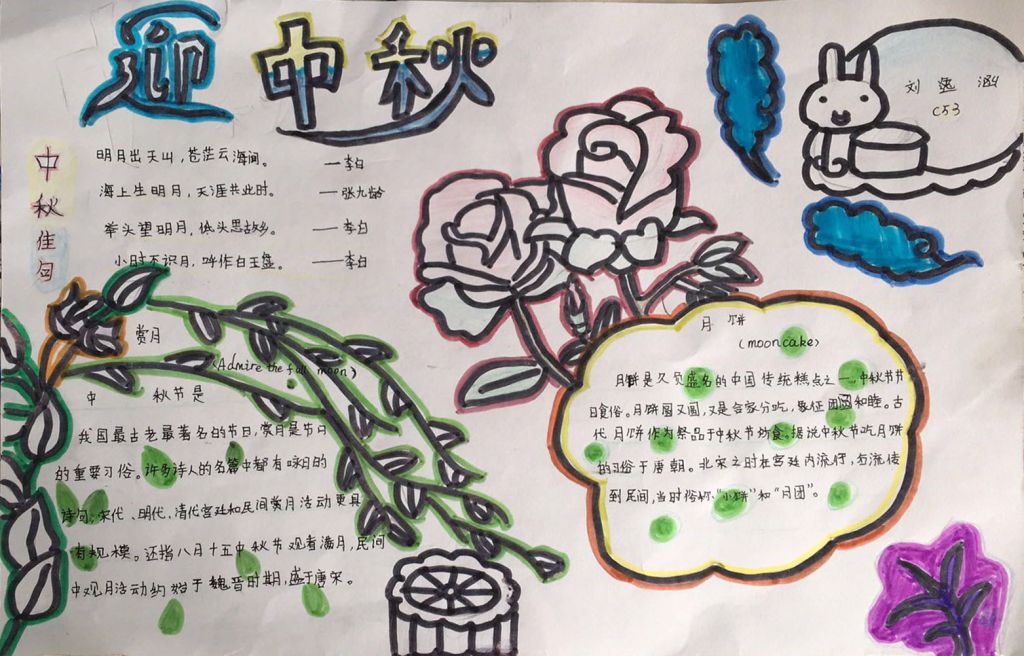 迎中秋
刘逸涵
C53
中秋佳句
明月出天山，苍茫云海间。 —李白
海上生明月，天涯共此时。 —张九龄
举头望明月，低头思故乡。 —李白
小时不识月，呼作白玉盘。 ——李白
赏月
(Admire the full moon)
中 秋节是
我国最古老最著名的节日，赏月是节日
的重要习俗。许多诗人的名篇中都有咏月的
诗句，宋代、明代、清代宫廷和民间赏月活动更具
有规模。还指八月十五中秋节观看满月，民间
中观月活动约始于魏晋时期，盛于唐宋。
月饼
(mooncake)
月饼是久负盛名的中国传统糕点之一，中秋节节
日食俗。月饼圆又圆，又是合家分吃，象征团圆和睦。古
代月饼作为祭品于中秋节所食。据说中秋节吃月饼
的习俗于唐朝。北宋之时在宫廷内流行，后流传
到民间，当时俗称"小饼"和"月团"。